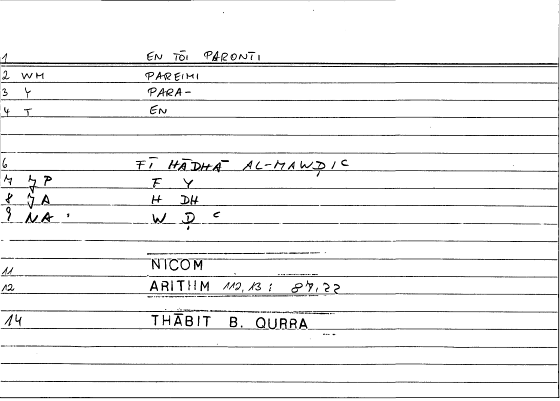 1 EN TŌI PARONTI
2 WH PAREIMI
3 Y PARA-
4 T EN
6 FĪ HĀDHĀ AL-MAWḌIC
7 JP F Y
8 JA H DH
9 NA W Ḍ C
11 NICOM
12 ARITHM 112,13 : 87,22
14 THĀBIT B. QURRA